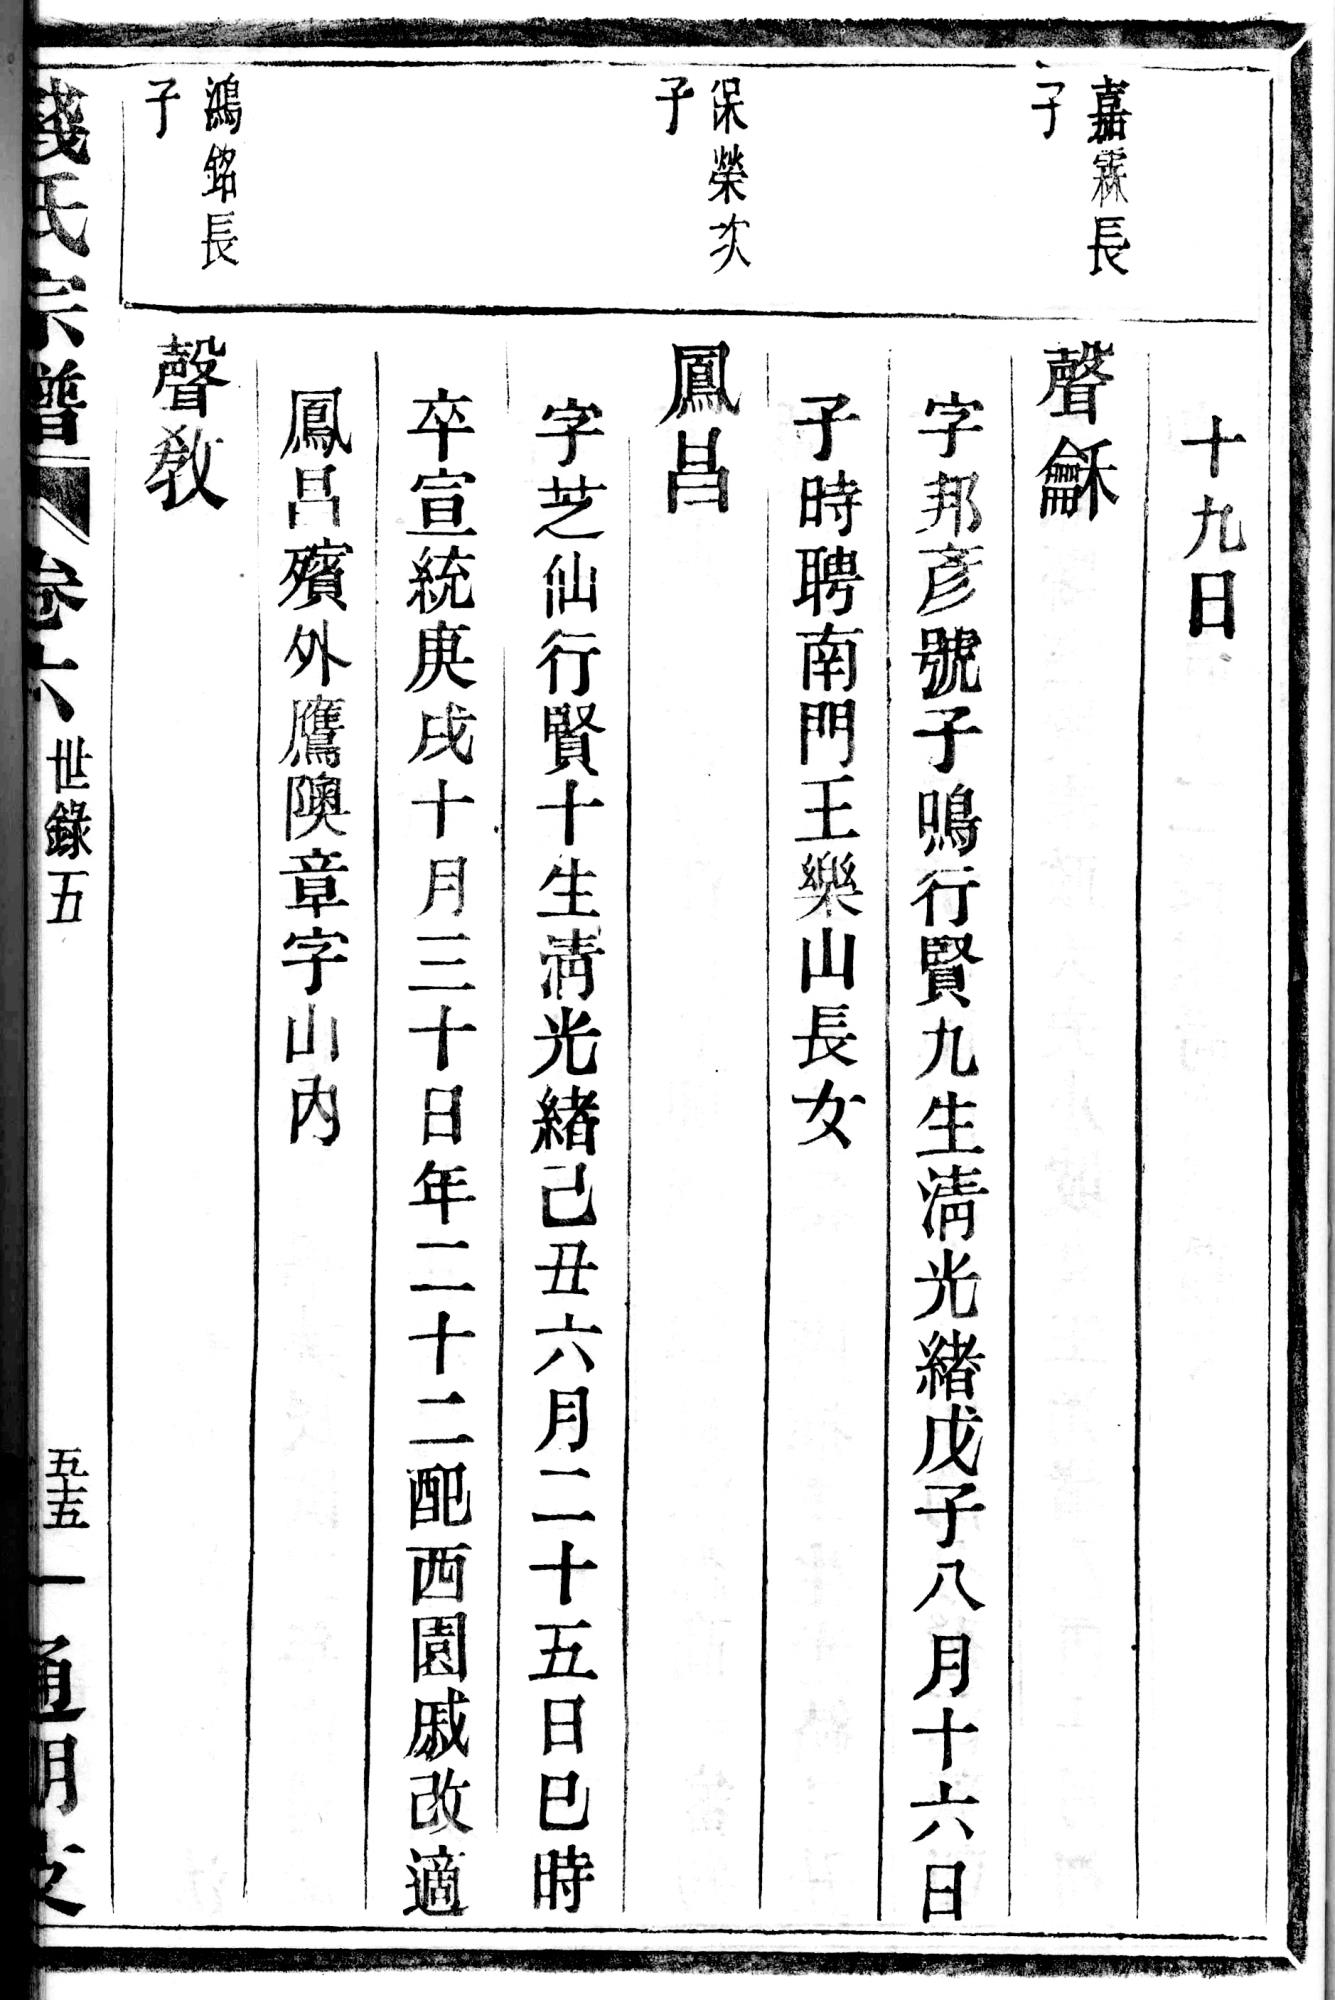 十九日
嘉霖長
子
聲龢
字邦彥號子鳴行賢九生淸光緒戊子八月十六日
子時聘南門王樂山長女
保榮次
子
鳳昌
字芝仙行賢十生淸光緒己丑六月二十五日巳時
卒宣統庚戌十月三十日年二十二配西園戚改適
鳳昌殯外鷹隩章字山內
鴻銘長
子
聲敎
錢氏宗譜
卷六
世錄五
五十五
通明支